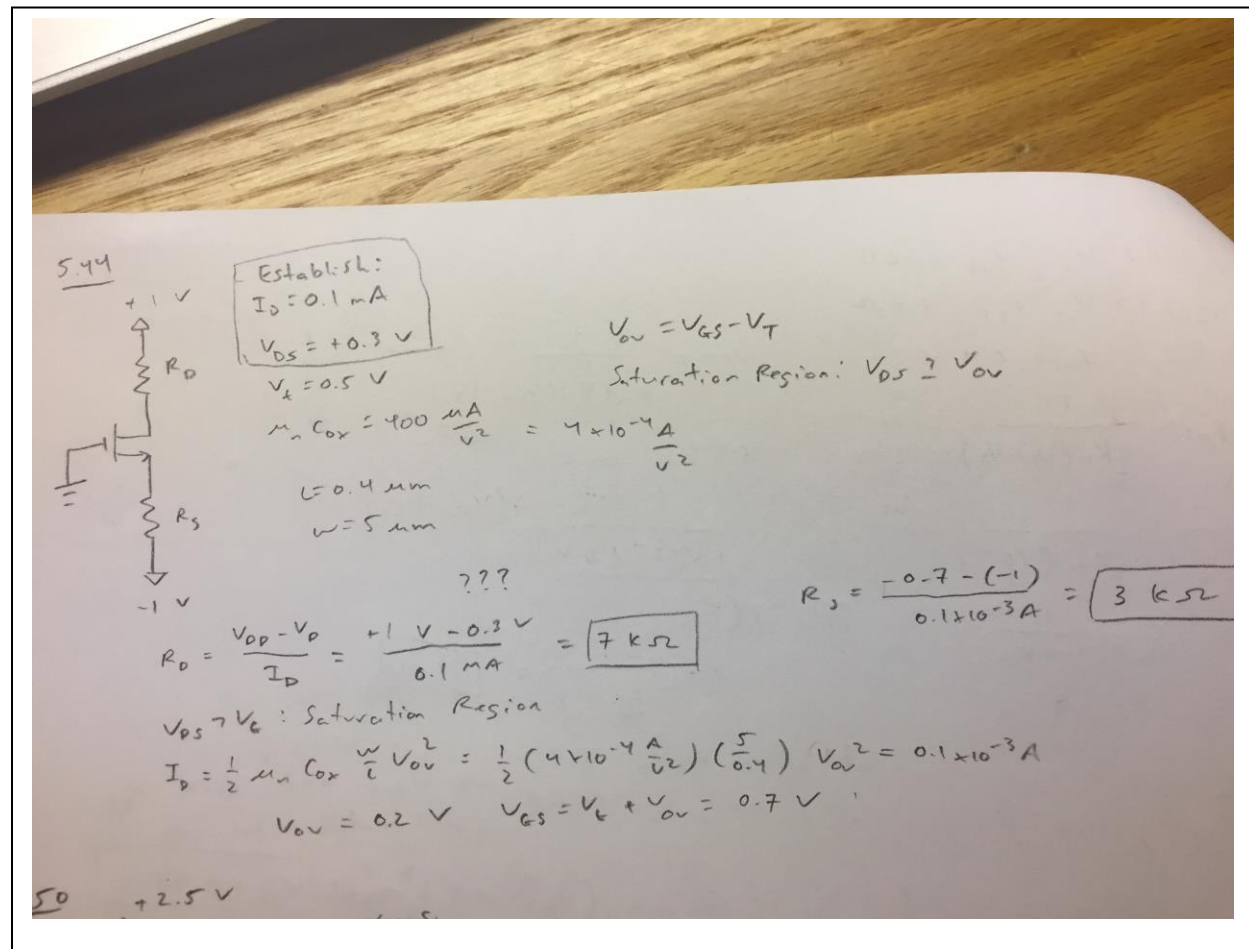 5.44
+1 V
R_D
R_S
-1 V
Establish:
I_D = 0.1 mA
V_DS = +0.3 V
V_t = 0.5 V
μ_n C_ox = 400 μA/V² = 4×10⁻⁴ A/V²
L = 0.4 μm
W = 5 μm
V_OV = V_GS - V_T
Saturation Region: V_DS ≥ V_OV
???
R_D = (V_DD - V_D)/I_D = (+1 V - 0.3 V)/(0.1 mA) = 7 kΩ
R_S = (-0.7 - (-1))/(0.1×10⁻³ A) = 3 kΩ
V_DS > V_G : Saturation Region
I_D = 1/2 μ_n C_ox W/L V_OV² = 1/2 (4×10⁻⁴ A/V²) (5/0.4) V_OV² = 0.1×10⁻³ A
V_OV = 0.2 V V_GS = V_t + V_OV = 0.7 V
50 +2.5 V